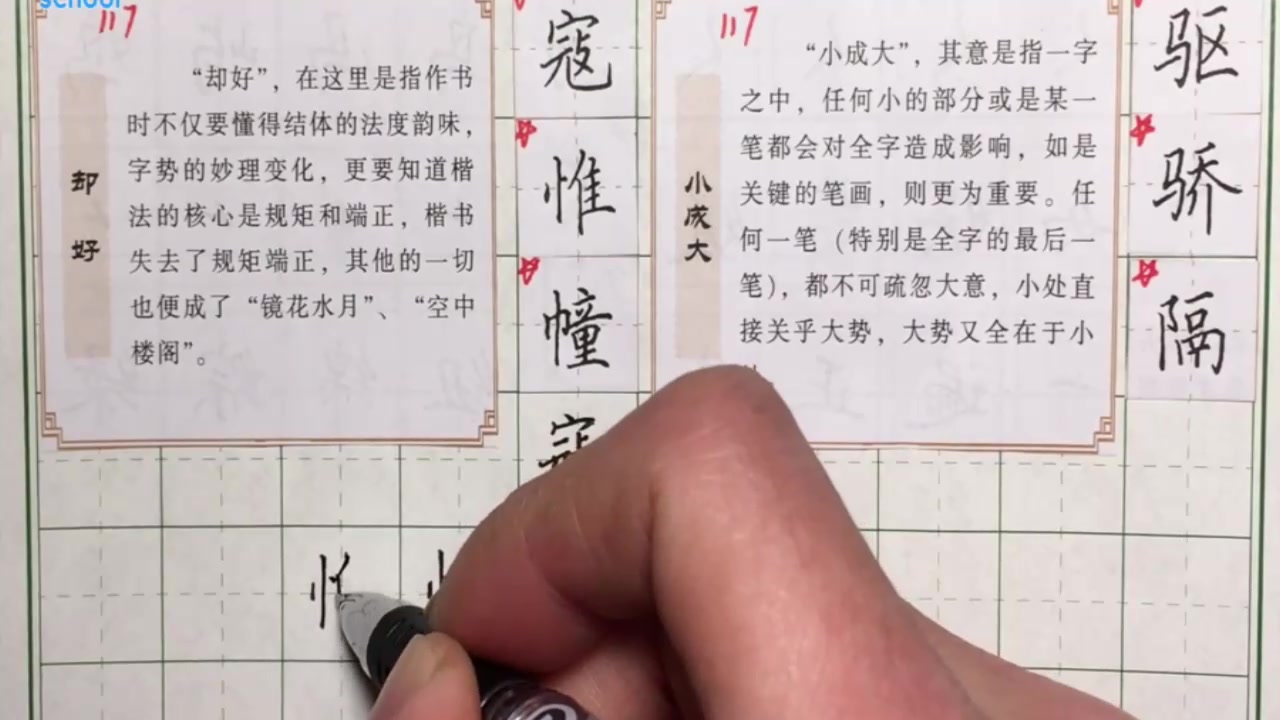 school
117
117
“却好”，在这里是指作书
时不仅要懂得结体的法度韵味，
字势的妙理变化，更要知道楷
法的核心是规矩和端正，楷书
失去了规矩端正，其他的一切
也便成了“镜花水月”、“空中
楼阁”。
却好
寇
惟
幢
寇
“小成大”，其意是指一字
之中，任何小的部分或是某一
笔都会对全字造成影响，如是
关键的笔画，则更为重要。任
何一笔（特别是全字的最后一
笔），都不可疏忽大意，小处直
接关乎大势，大势又全在于小
小成大
驱
骄
隔